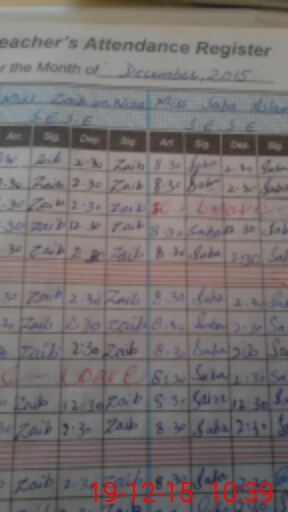 eacher's Attendance Register
r the Month of December, 2015
Miss Zaib un Nisa Miss Saba
S.E.S.E S.E.S.E
Arr. Sig. Dep. Sig. Arr. Sig. Dep. Sig.
30 Zaib 2:30 Zaib 8:30 Saba 2:30 Saba
8:30 Zaib 2:30 Zaib 8:30 Saba 2:30 Saba
:30 Zaib 2:30 Zaib C - Leave -
:30 Zaib 12:30 Zaib 8:30 Saba 12:30 Sab
:30 Zaib 2:30 Zaib 8:30 Saba 2:30 Sa
30 Zaib 2:30 Zaib 8:30 Saba 2:30 Sa
30 Zaib 2:30 Zaib 8:30 Saba 2:30 Sa
Zaib 2:30 Zaib 8:30 Saba 2:30 Sa
C - Leave 8:30 Saba 2:30 Sa
Zaib 12:30 Zaib 8:30 Saba 12:30 S
30 Zaib 2:30 Zaib 8:30 Saba 2:30 S
Zaib 2:30 Zaib 8:30 Saba
19-12-15 10:39